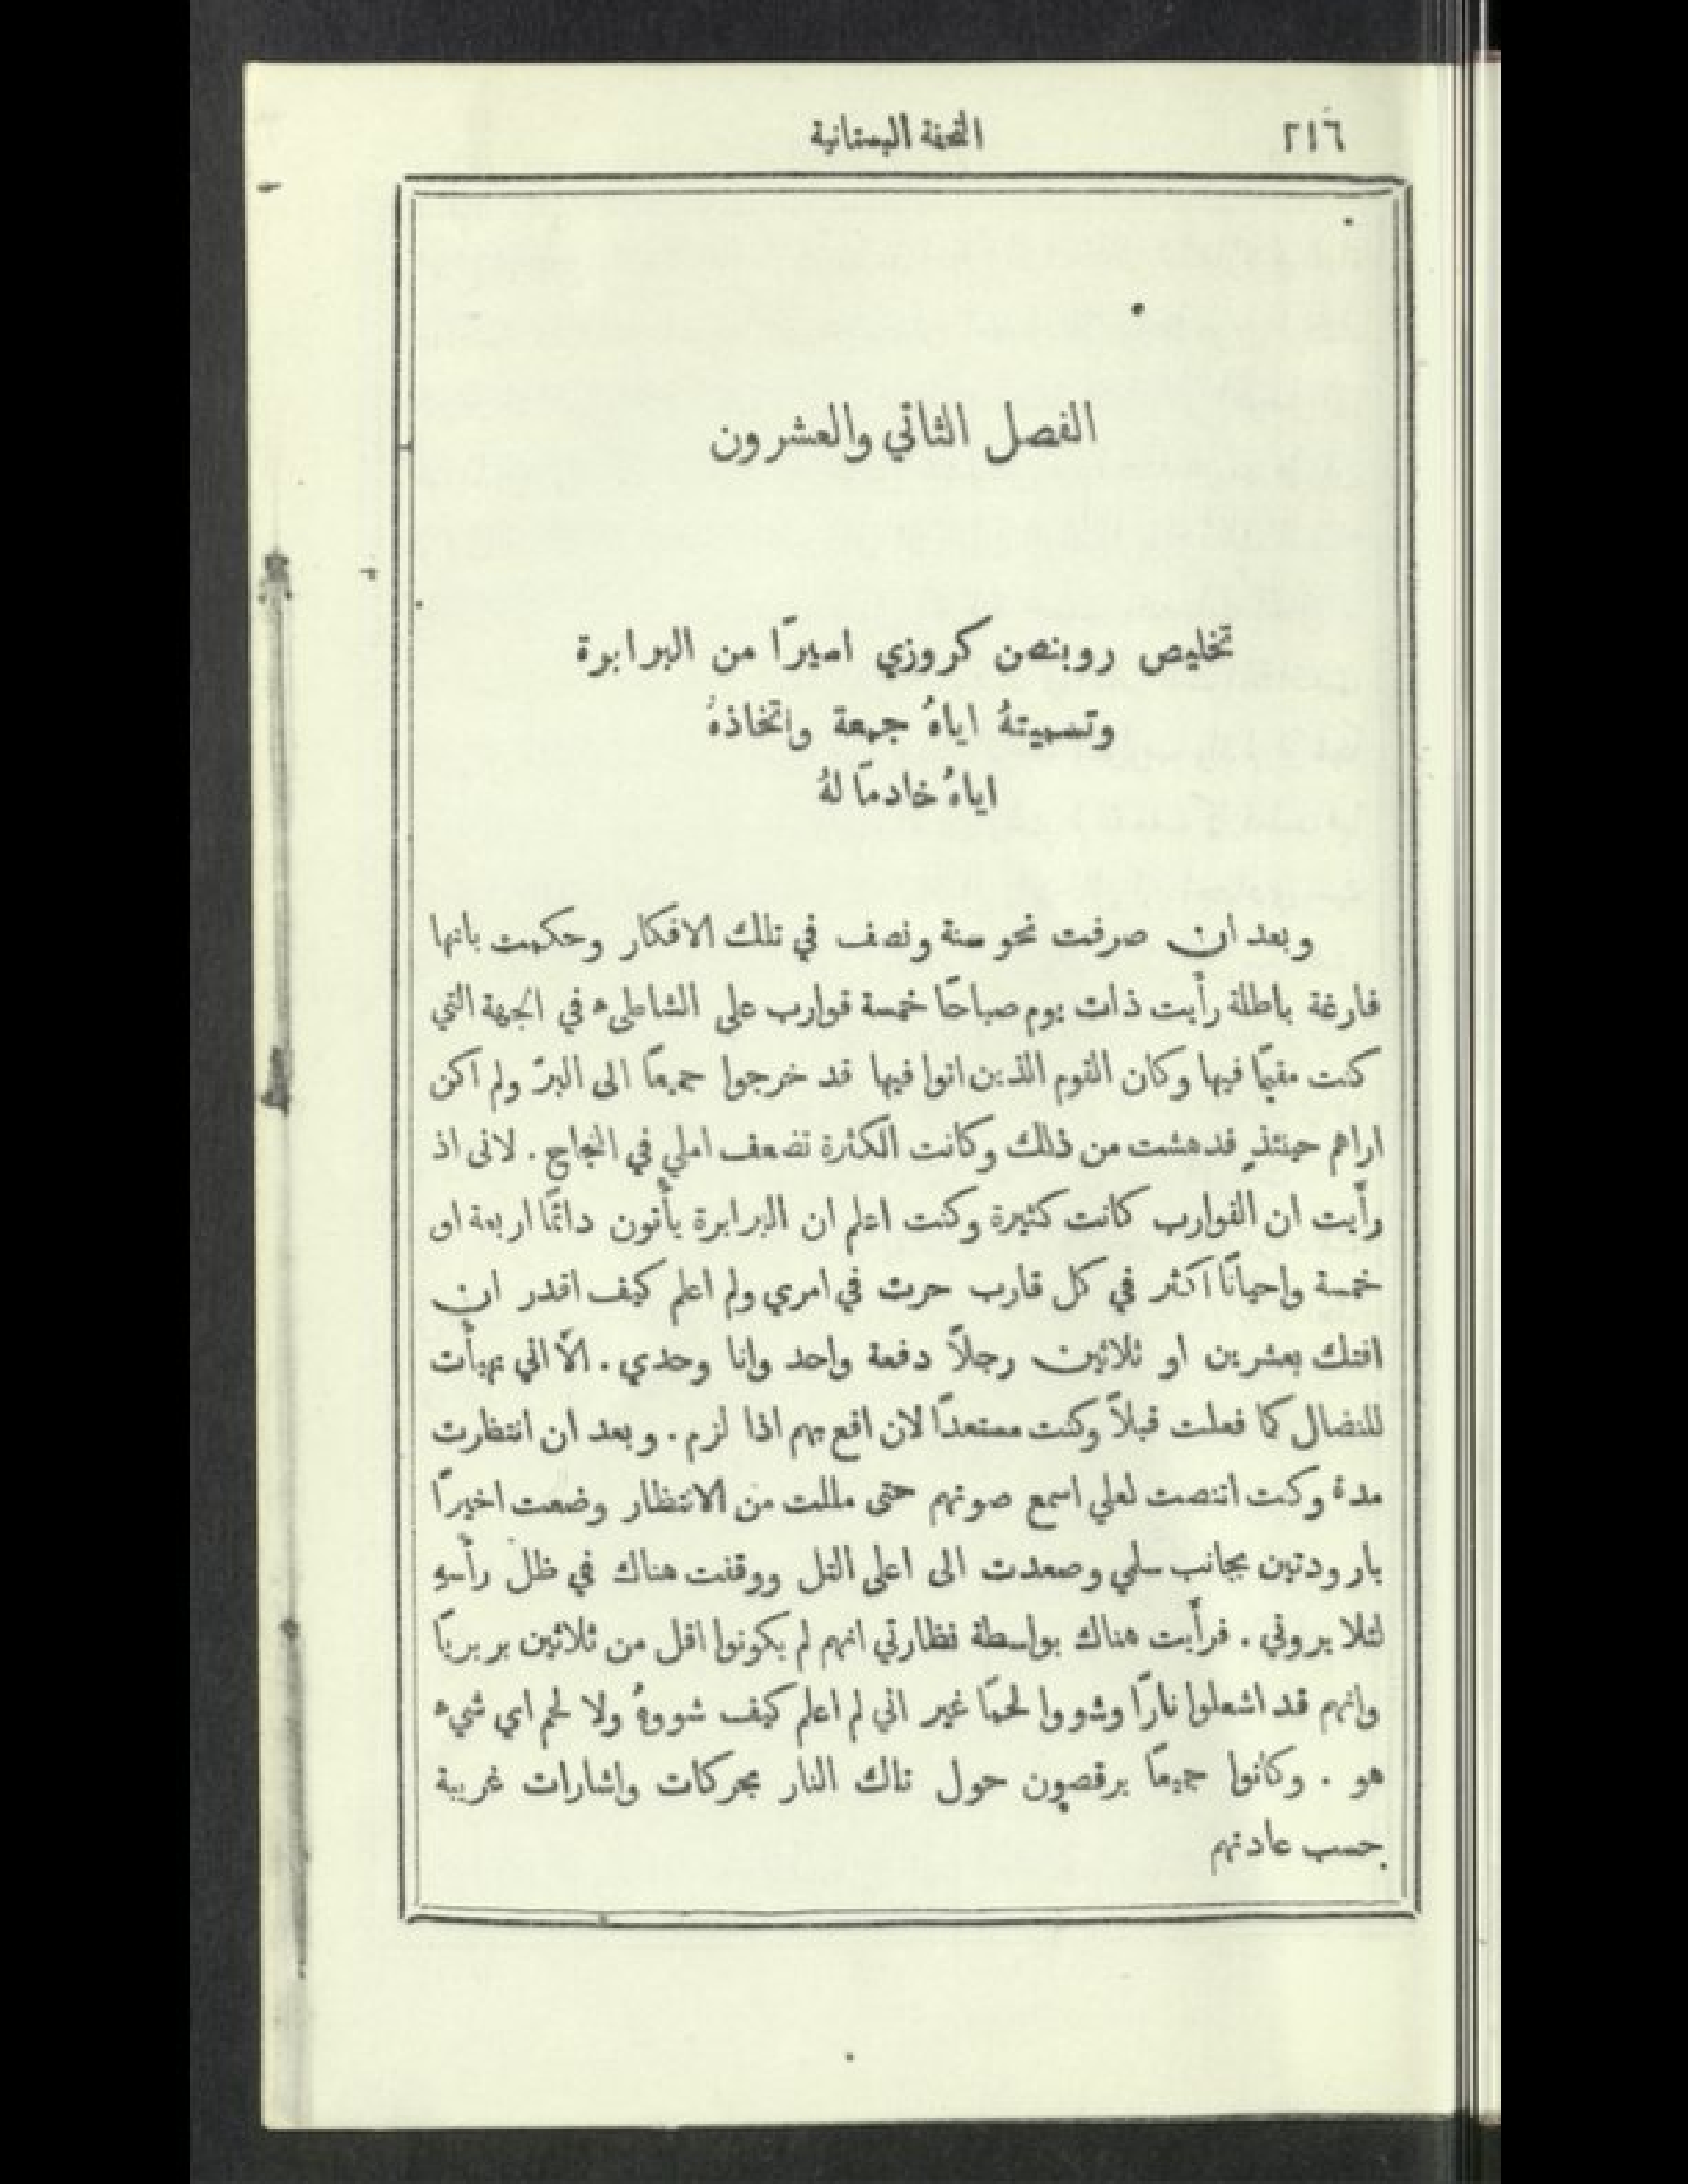 ٢١٦
التحفة البستانية
الفصل الثاني والعشرون
تخليص روبنصن كروزي اميرًا من البرابرة
وتسميتهُ اياهُ جمعة واتخاذهُ
اياهُ خادمًا لهُ
وبعد ان صرفت نحو سنة ونصف في تلك الافكار وحكمت بانها
فارغة باطلة رأيت ذات يوم صباحًا خمسة قوارب على الشاطىء في الجهة التي
كنت مقيمًا فيها وكان القوم الذين اتوا فيها قد خرجوا جميعًا الى البرّ ولم اكن
اراهم حينئذٍ فدهشت من ذلك وكانت الكثرة تضعف املي في النجاح. لانى اذ
رأيت ان القوارب كانت كثيرة وكنت اعلم ان البرابرة يأتون دائمًا اربعة او
خمسة واحيانًا اكثر في كل قارب حرت في امري ولم اعلم كيف اقدر ان
افتك بعشرين او ثلاثين رجلاً دفعة واحد وانا وحدي. الاّ اني تهيأت
للنضال كما فعلت قبلاً وكنت مستعدًا لان اقع بهم اذا لزم. وبعد ان انتظارت
مدة وكنت اتنصت لعلي اسمع صوتهم حتى مللت من الانتظار وضعت اخيرًا
بارودتين بجانب سلمي وصعدت الى اعلى التل ووقفت هناك في ظل رأسهِ
لئلا يروني. فرأيت هناك بواسطة نظارتي انهم لم يكونوا اقل من ثلاثين بربريًا
وانهم قد اشعلوا نارًا وشووا لحمًا غير اني لم اعلم كيف شووهُ ولا لحم اي شيء
هو. وكانوا جميعًا يرقصون حول تلك النار بحركات واشارات غريبة
حسب عادتهم